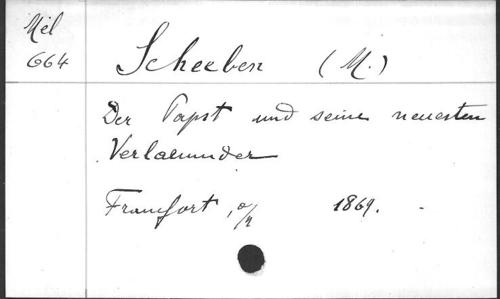 Mél
664
Scheeben (M.)
Der Papst und seine neuesten
Verlaeumder
Francfort, o/M 1869.